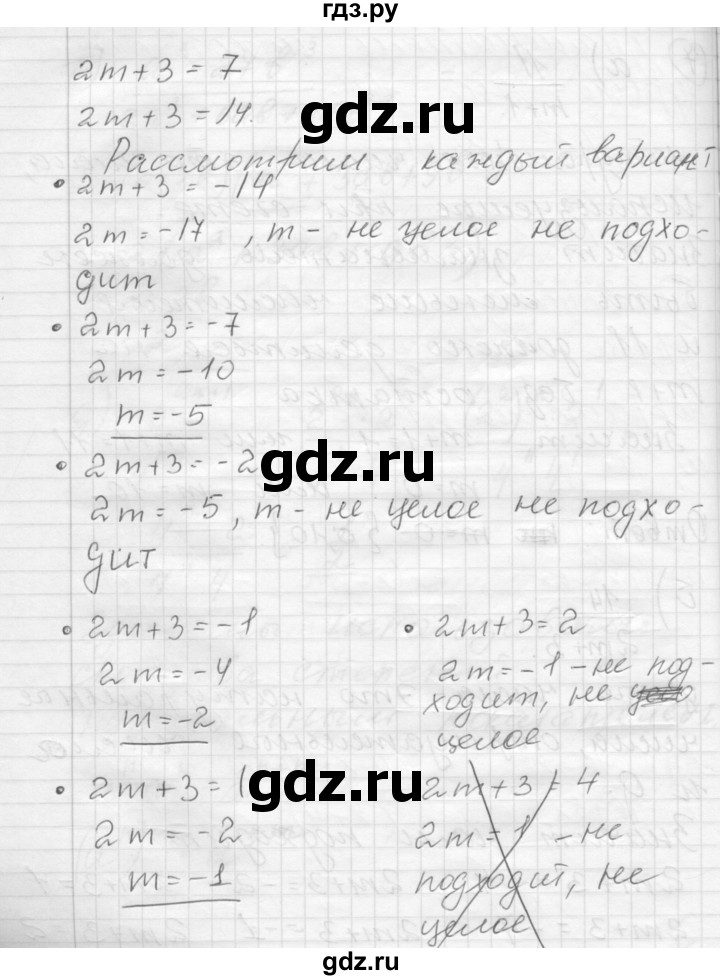 гдз.ру
2m+3=7
2m+3=14.
gdz.ru
Рассмотрим каждый вариант
• 2m+3=-14
2m=-17, m- не целое не подхо-
дит
• 2m+3=-7
2m=-10
m=-5
gdz.ru
• 2m+3=-2
2m=-5, m- не целое не подхо-
дит
• 2m+3=-1
2m=-4
m=-2
• 2m+3=2
2m=-1-не под-
ходит, не
целое
• 2m+3=1
gdz.ru
2m=-2
m=-1
2m+3=4
2m=1 -не
подходит, не
целое
гдз.ру